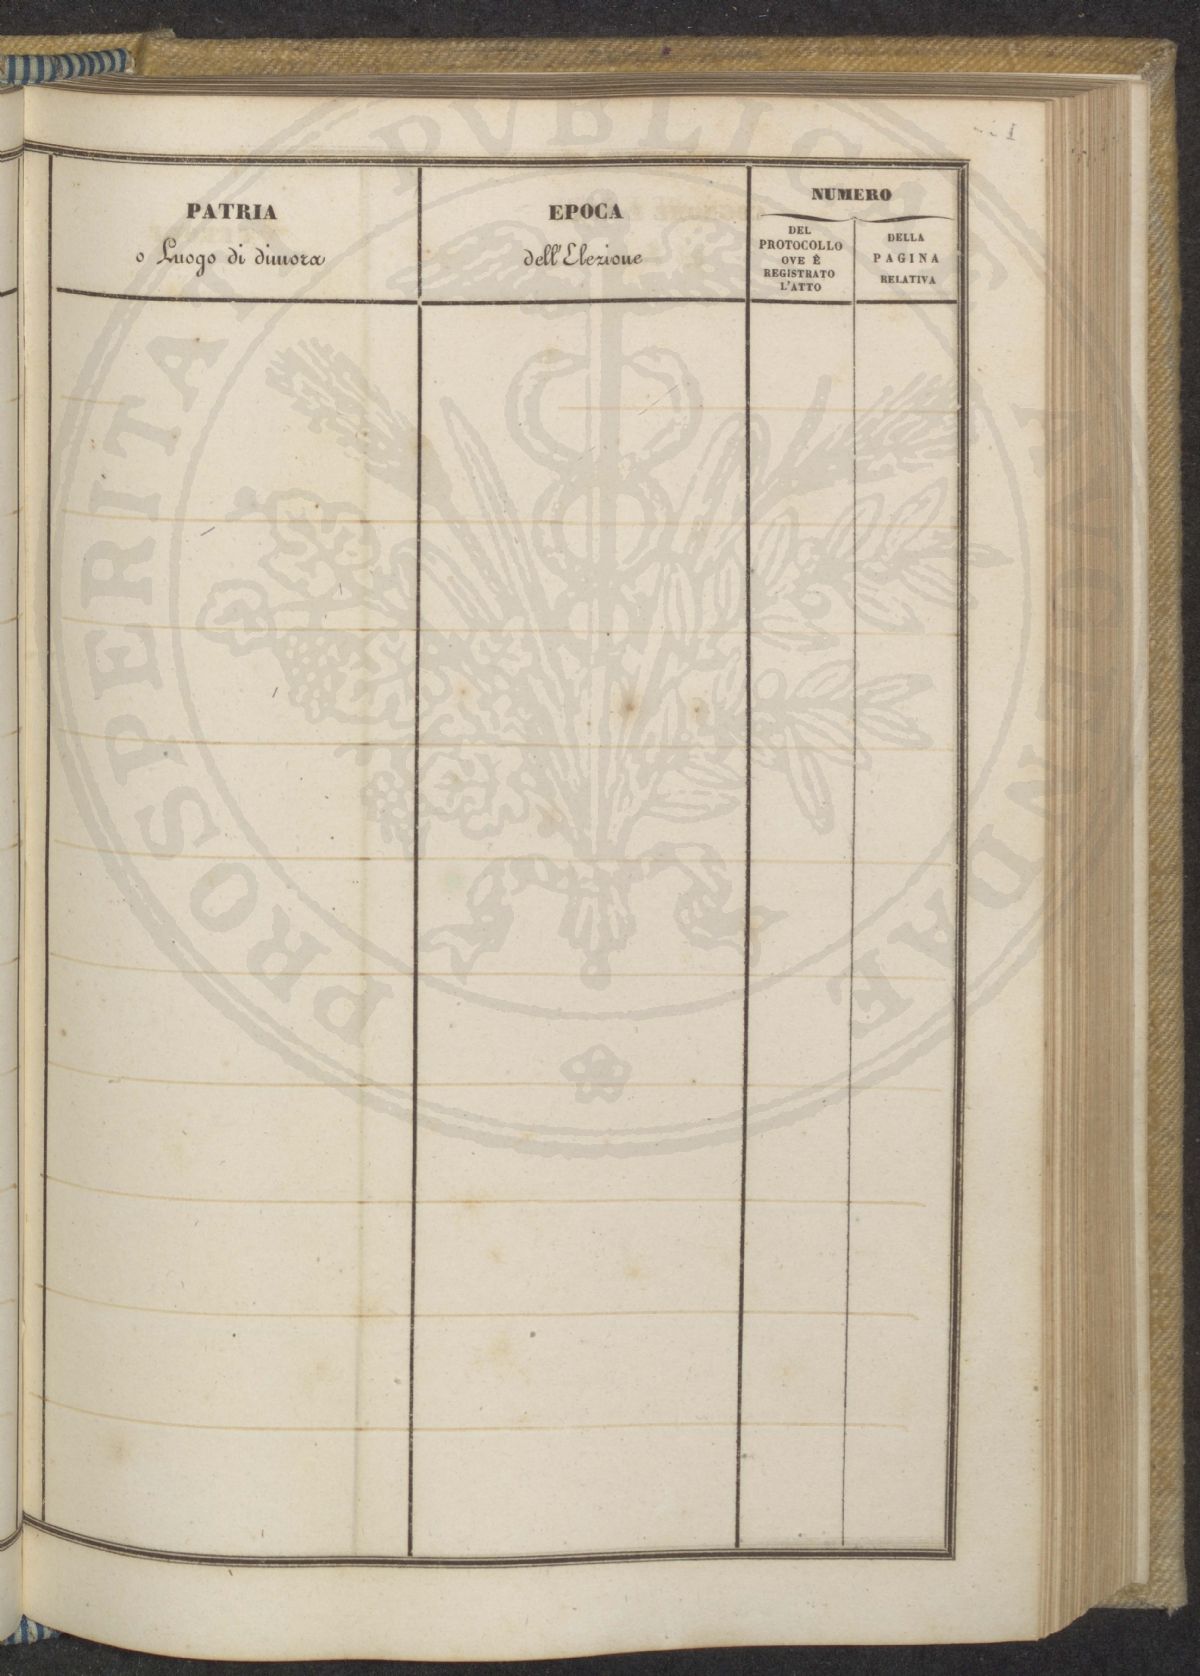 PATRIA
o Luogo di dimora
EPOCA
dell'Elezione
NUMERO
DEL
PROTOCOLLO
OVE È
REGISTRATO
L'ATTO
DELLA
PAGINA
RELATIVA
PROSPERITATI PVBLICAE AVGENDAE